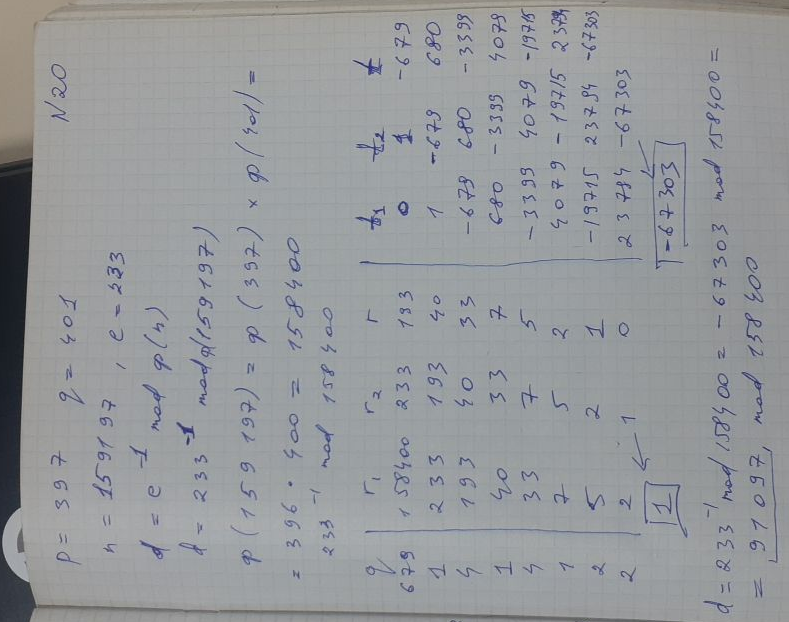 N20
p = 397 q = 401
n = 159197, e = 233
d = e^-1 mod φ(n)
d = 233^-1 mod φ(159197)
φ(159197) = φ(397) × φ(401) =
= 396 · 400 = 158400
233^-1 mod 158400
q r1 r2 r t1 t2 t
679 158400 233 193 0 1 -679
1 233 193 40 1 -679 680
4 193 40 33 -679 680 -3399
1 40 33 7 680 -3399 4079
4 33 7 5 -3399 4079 -19715
1 7 5 2 4079 -19715 23794
2 5 2 1 -19715 23794 -67303
2 2 1 0 23784 -67303
1 -67303
d = 233^-1 mod 158400 = -67303 mod 158400 =
= 91097, mod 158400